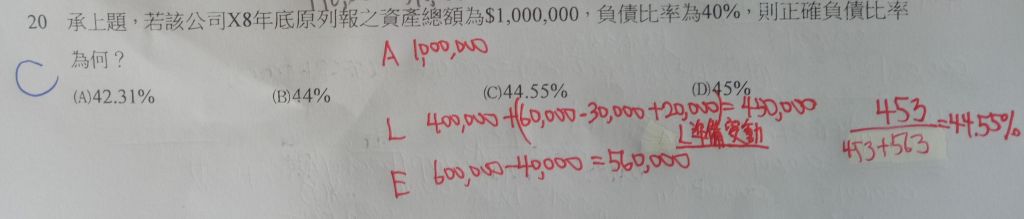 20 承上題，若該公司X8年底原列報之資產總額為$1,000,000，負債比率為40%，則正確負債比率
為何？
A 1,000,000
C
(A)42.31% (B)44% (C)44.55% (D)45%
L 400,000+(60,000-30,000+20,000)=450,000
453/453+563=44.55%
E 600,000-40,000=560,000